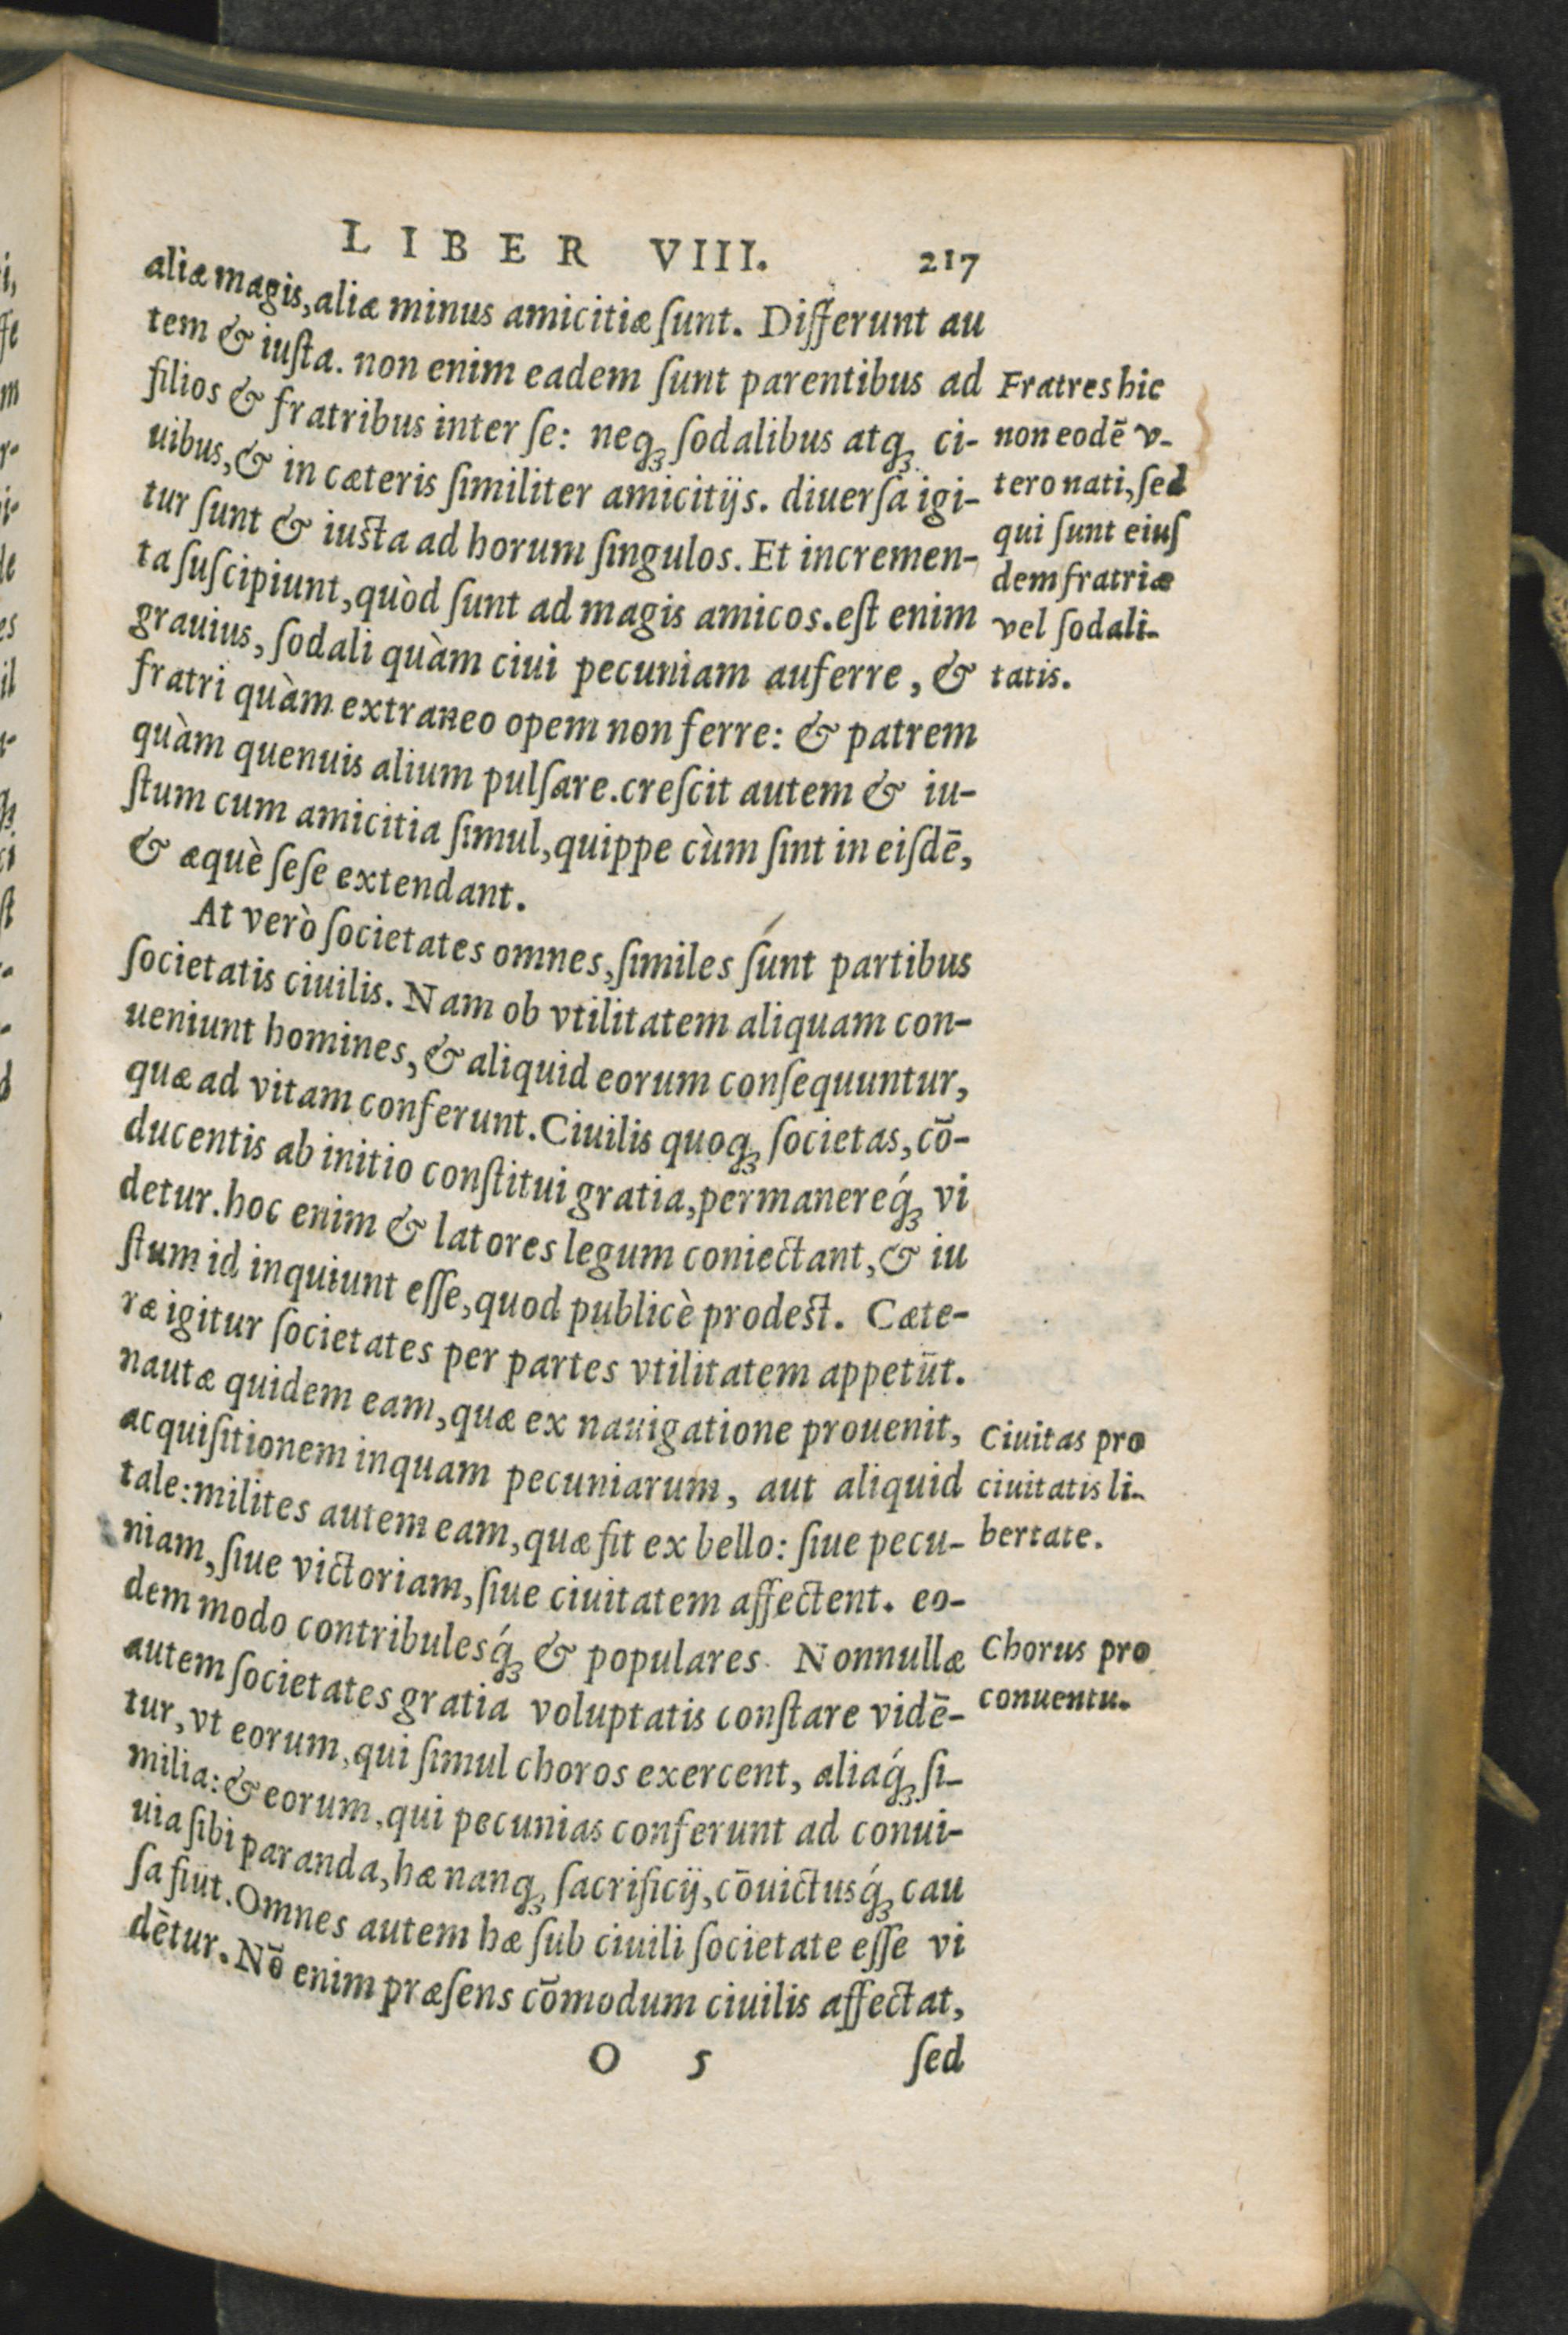 LIBER VIII. 217
aliæ magis, aliæ minus amicitiæ ſunt. Differunt au
tem & iuſta. non enim eadem ſunt parentibus ad
filios & fratribus inter ſe: neqꝫ ſodalibus atqꝫ ci-
uibus, & in cæteris ſimiliter amicitijs. diuerſa igi-
tur ſunt & iuſta ad horum ſingulos. Et incremen-
ta ſuſcipiunt, quòd ſunt ad magis amicos. eſt enim
grauius, ſodali quàm ciui pecuniam auferre, &
fratri quàm extraneo opem non ferre: & patrem
quàm quenuis alium pulſare. creſcit autem & iu-
ſtum cum amicitia ſimul, quippe cùm ſint in eiſdē,
& æquè ſeſe extendant.
Fratres hic
non eodē v-
tero nati, ſed
qui ſunt eiuſ
dem fratriæ
vel ſodali-
tatis.
At verò ſocietates omnes, ſimiles ſunt partibus
ſocietatis ciuilis. Nam ob vtilitatem aliquam con-
ueniunt homines, & aliquid eorum conſequuntur,
quæ ad vitam conferunt. Ciuilis quoqꝫ ſocietas, cō-
ducentis ab initio conſtitui gratia, permanereq́ꝫ vi
detur. hoc enim & latores legum coniectant, & iu
ſtum id inquiunt eſſe, quod publicè prodeſt. Cæte-
ræ igitur ſocietates per partes vtilitatem appetūt.
nautæ quidem eam, quæ ex nauigatione prouenit,
acquiſitionem inquam pecuniarum, aut aliquid
tale: milites autem eam, quæ fit ex bello: ſiue pecu-
niam, ſiue victoriam, ſiue ciuitatem affectent. eo-
dem modo contribulesq́ꝫ & populares. Nonnullæ
autem ſocietates gratia voluptatis conſtare vidē-
tur, vt eorum, qui ſimul choros exercent, aliaq́ꝫ ſi-
milia: & eorum, qui pecunias conferunt ad conui-
uia ſibi paranda, hæ nanqꝫ ſacrificij, cōuictusq́ꝫ cau
ſa fiūt. Omnes autem hæ ſub ciuili ſocietate eſſe vi
dētur. Nō enim præſens cōmodum ciuilis affectat,
Ciuitas pro
ciuitatis li-
bertate.
Chorus pro
conuentu.
O 5 ſed